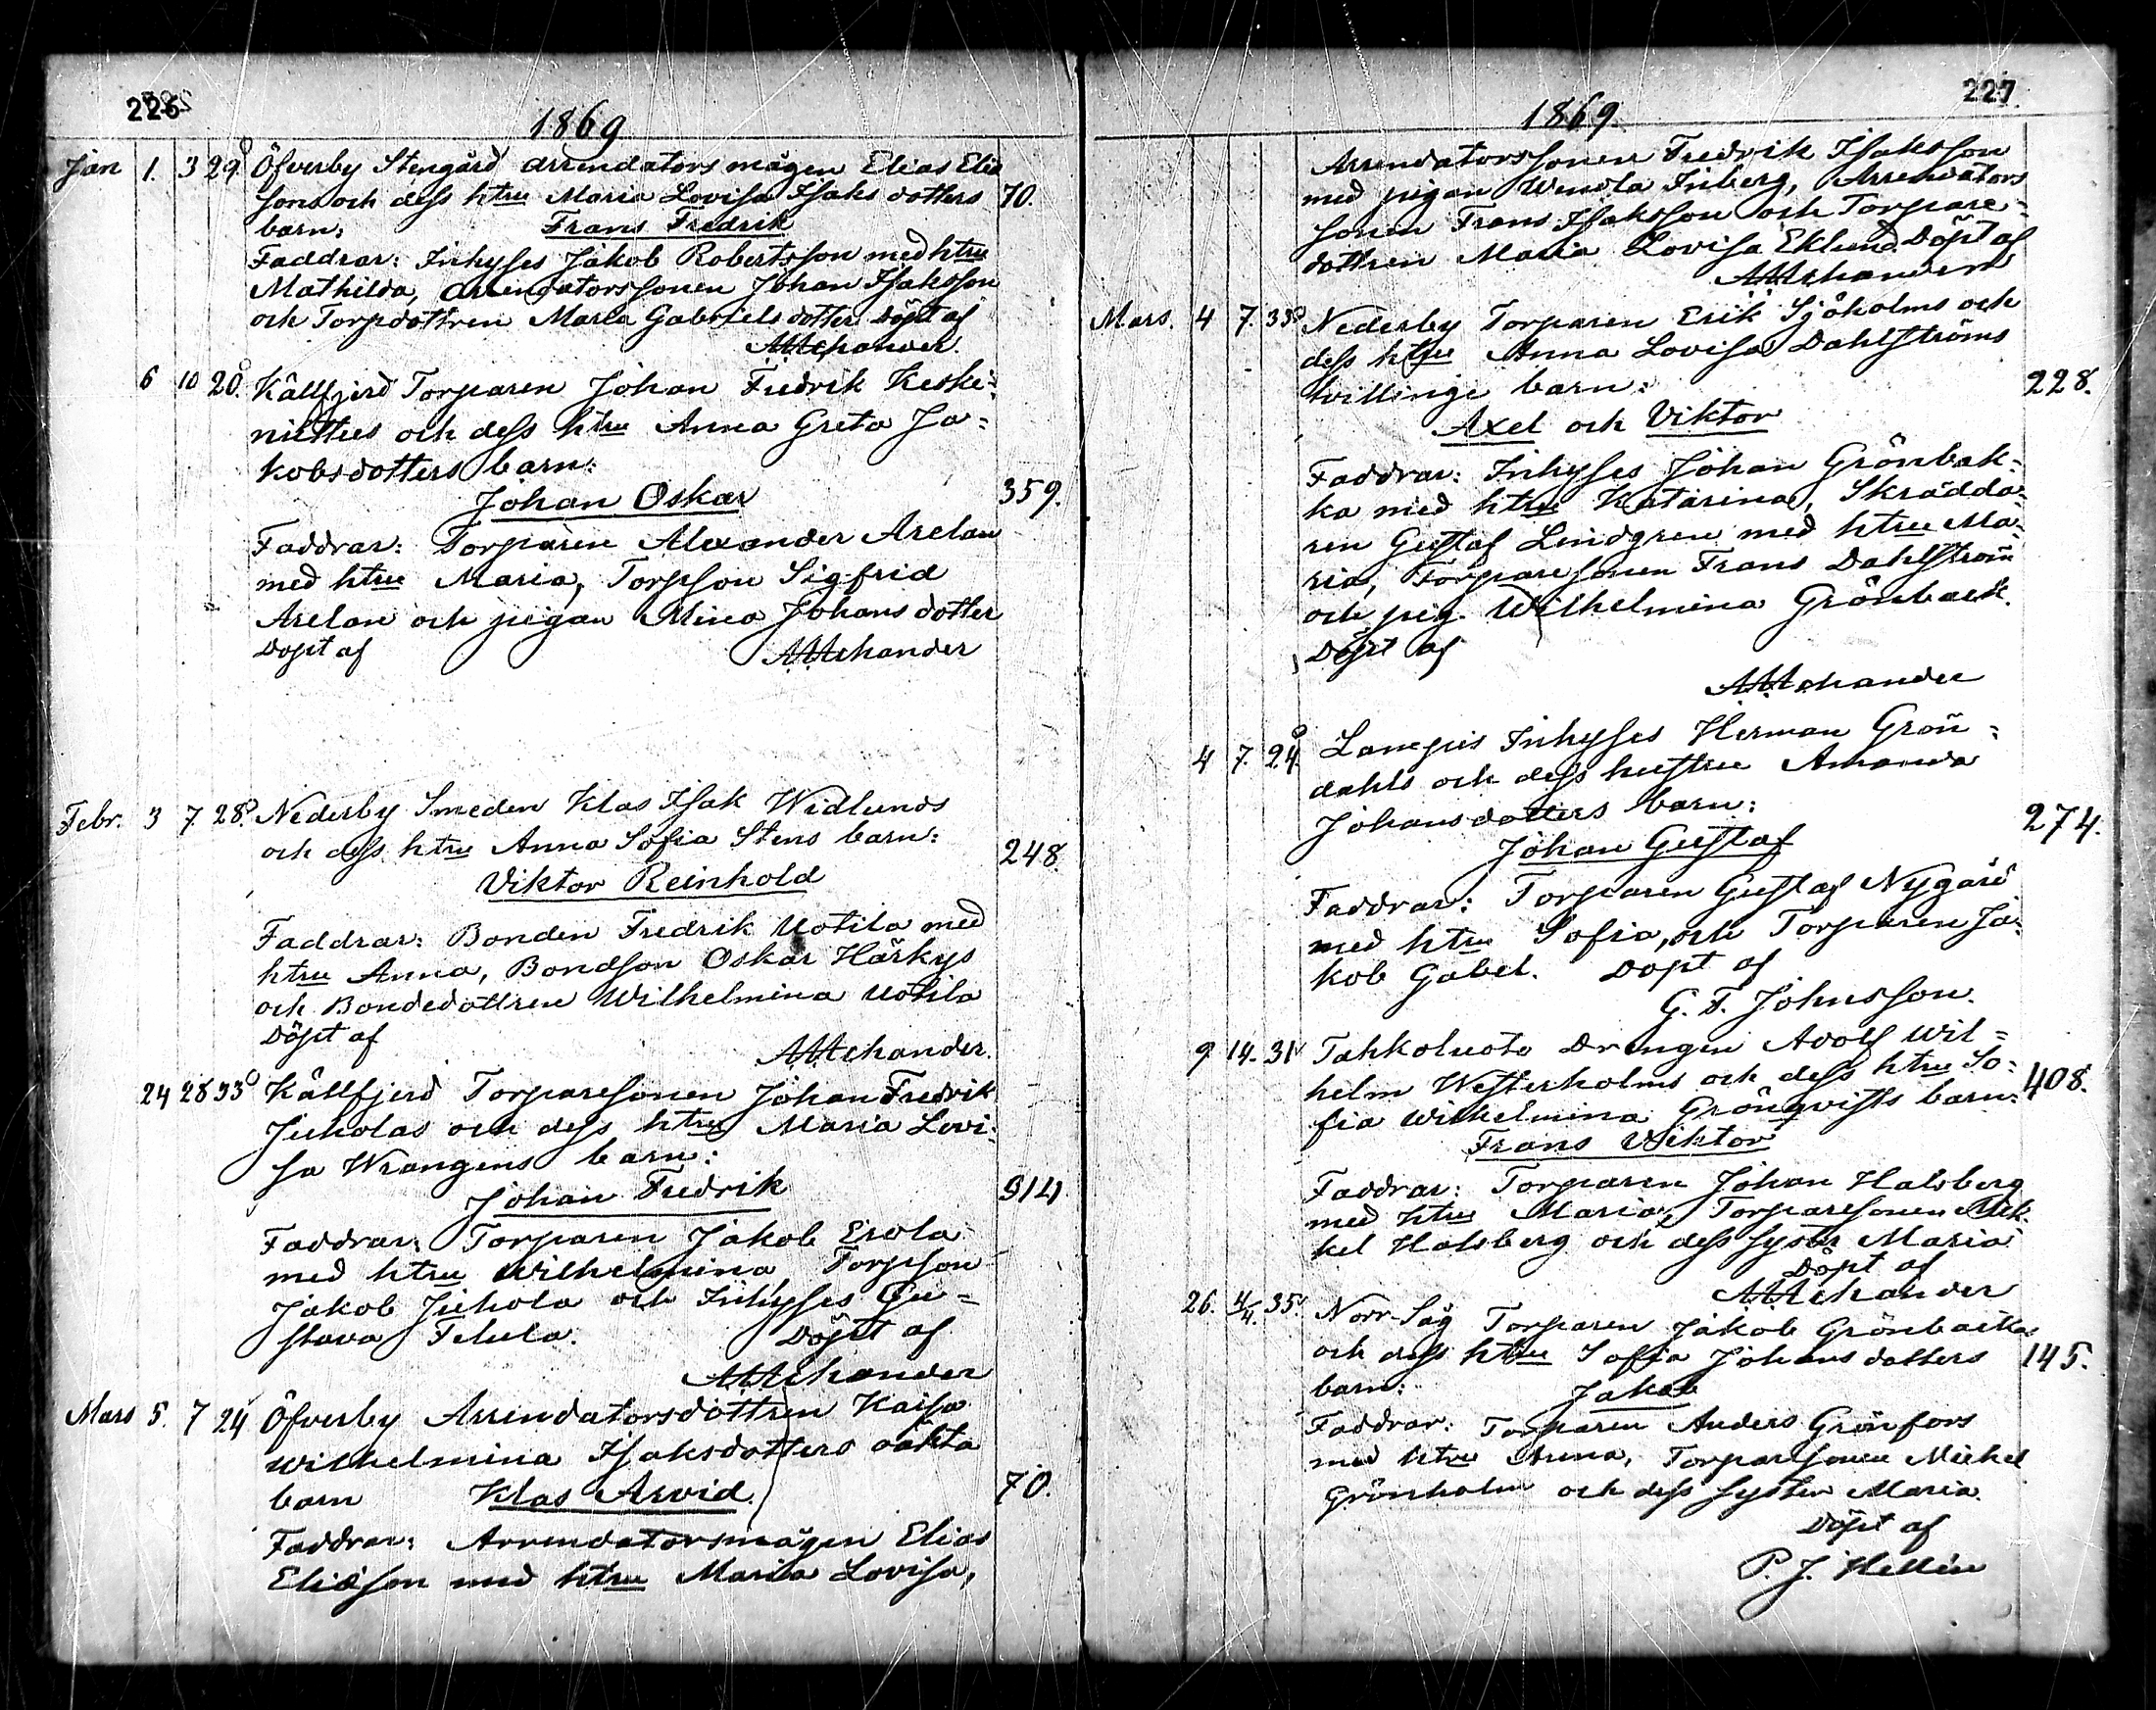 226
1869
Jan 1. 3 29 Öfverby Stengård arrendators mågen Elias Elia
sons och dess htru Maria Lovisa Isaks dotters 70.
barn: Frans Fredrik
Faddrar: Inhyses Jakob Robertsson med htru
Mathilda, arrendatorssonen Johan Isaksson
och Torpdottren Maria Gabriels dotter Döpt af
6 10 20. Kållfjerd Torparen Johan Fredrik Keski-
nisttus och dess htru Anna Greta Ja-
kobsdotters barn:
Johan Oskar 359.
Faddrar: Torparen Alexander Arelan
med htru Maria, Torpson Sigfrid
Arelan och pigan Mina Johans dotter
Döpt af
Febr. 3 7 28. Nederby Smeden Klas Isak Widlunds
och dess htru Anna Sofia Stens barn: 248
Viktor Reinhold
Faddrar: Bonden Fredrik Uotila med
htru Anna, Bondson Oskar Härkys
och Bondedottren Wilhelmina Uotila
Döpt af
24 28 33 Kållfjerd Torparesonen Johan Fredrik
Juholas och dess htru Maria Lovi-
sa Wrangens barn:
Johan Fredrik 314
Faddrar: Torparen Jakob Erola
med htru Wilhelmina, Torpson
Jakob Juhola och Inhyses Gu-
stava Filula. Döpt af
Mars 5. 7 24 Öfverby Arrendatorsdottren Kaisa
Wilhelmina Isaksdotters oäkta
barn Klas Arvid. 70.
Faddrar: Arrendatorsmågen Elias
Eliasson med htru Maria Lovisa,
227
1869.
Arrendatorssonen Fredrik Isaksson
med pigan Wendla Friberg, Arrendators
sonen Frans Isaksson och Torpare-
dottren Maria Lovisa Eklund. Döpt af
Mars. 4 7. 33 Nederby Torparen Erik Sjöholms och
dess htru Anna Lovisa Dahlströms
tvillinge barn: 228.
Axel och Viktor
Faddrar: Inhyses Johan Grönbak-
ka med htru Katarina, Skrädda-
ren Gustaf Lindgren med htru Ma-
ria, Torparesonen Frans Dahlström
och pig. Wilhelmina Grönback.
Döpt af
4 7. 24. Lampis Inhyses Herman Grön-
dahls och dess hustru Amanda
Johansdotters barn: 274.
Johan Gustaf
Faddrar: Torparen Gustaf Nygård
med htru Sofia, och Torparen Ja-
kob Gabel. Döpt af
G. F. Johnsson.
9 14. 31 Tahkoluoto Drengen Adolf Wil-
helm Westerholms och dess htru So- 408.
fia Wilhelmina Grönqvists barn:
Frans Viktor
Faddrar: Torparen Johan Halsberg
med htru Maria, Torparesonen Mik-
kel Halsberg och dess syster Maria
Döpt af
26. 4/4. 35. Norr-Säg Torparen Jakob Grönbacka
och dess htru Sofia Johans dotters 145.
barn: Jakob
Faddrar: Torparen Anders Grönfors
med htru Anna, Torparsonen Mickel
Grönholm och dess syster Maria.
Döpt af
P. J. Hellén